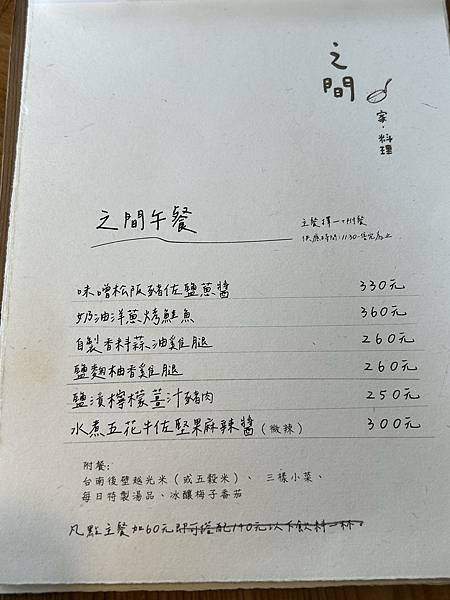 之間
家·料理
之間午餐
主餐擇一+附餐
供應時間:11:30-售完為止
味噌松阪豬佐鹽蔥醬 330元
奶油洋蔥烤鮭魚 360元
自製香料蒜油雞腿 260元
鹽麴柚香雞腿 260元
鹽漬檸檬薑汁豬肉 250元
水煮五花牛佐堅果麻辣醬(微辣) 300元
附餐:
台南後壁越光米(或五穀米)、三樣小菜、
每日特製湯品、冰釀梅子番茄
凡點主餐加60元即可搭配140元以下飲料一杯。